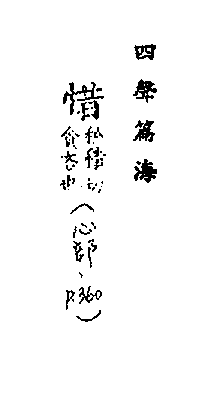 四聲篇海
惜私積切
貪吝也
(心部、P.360)